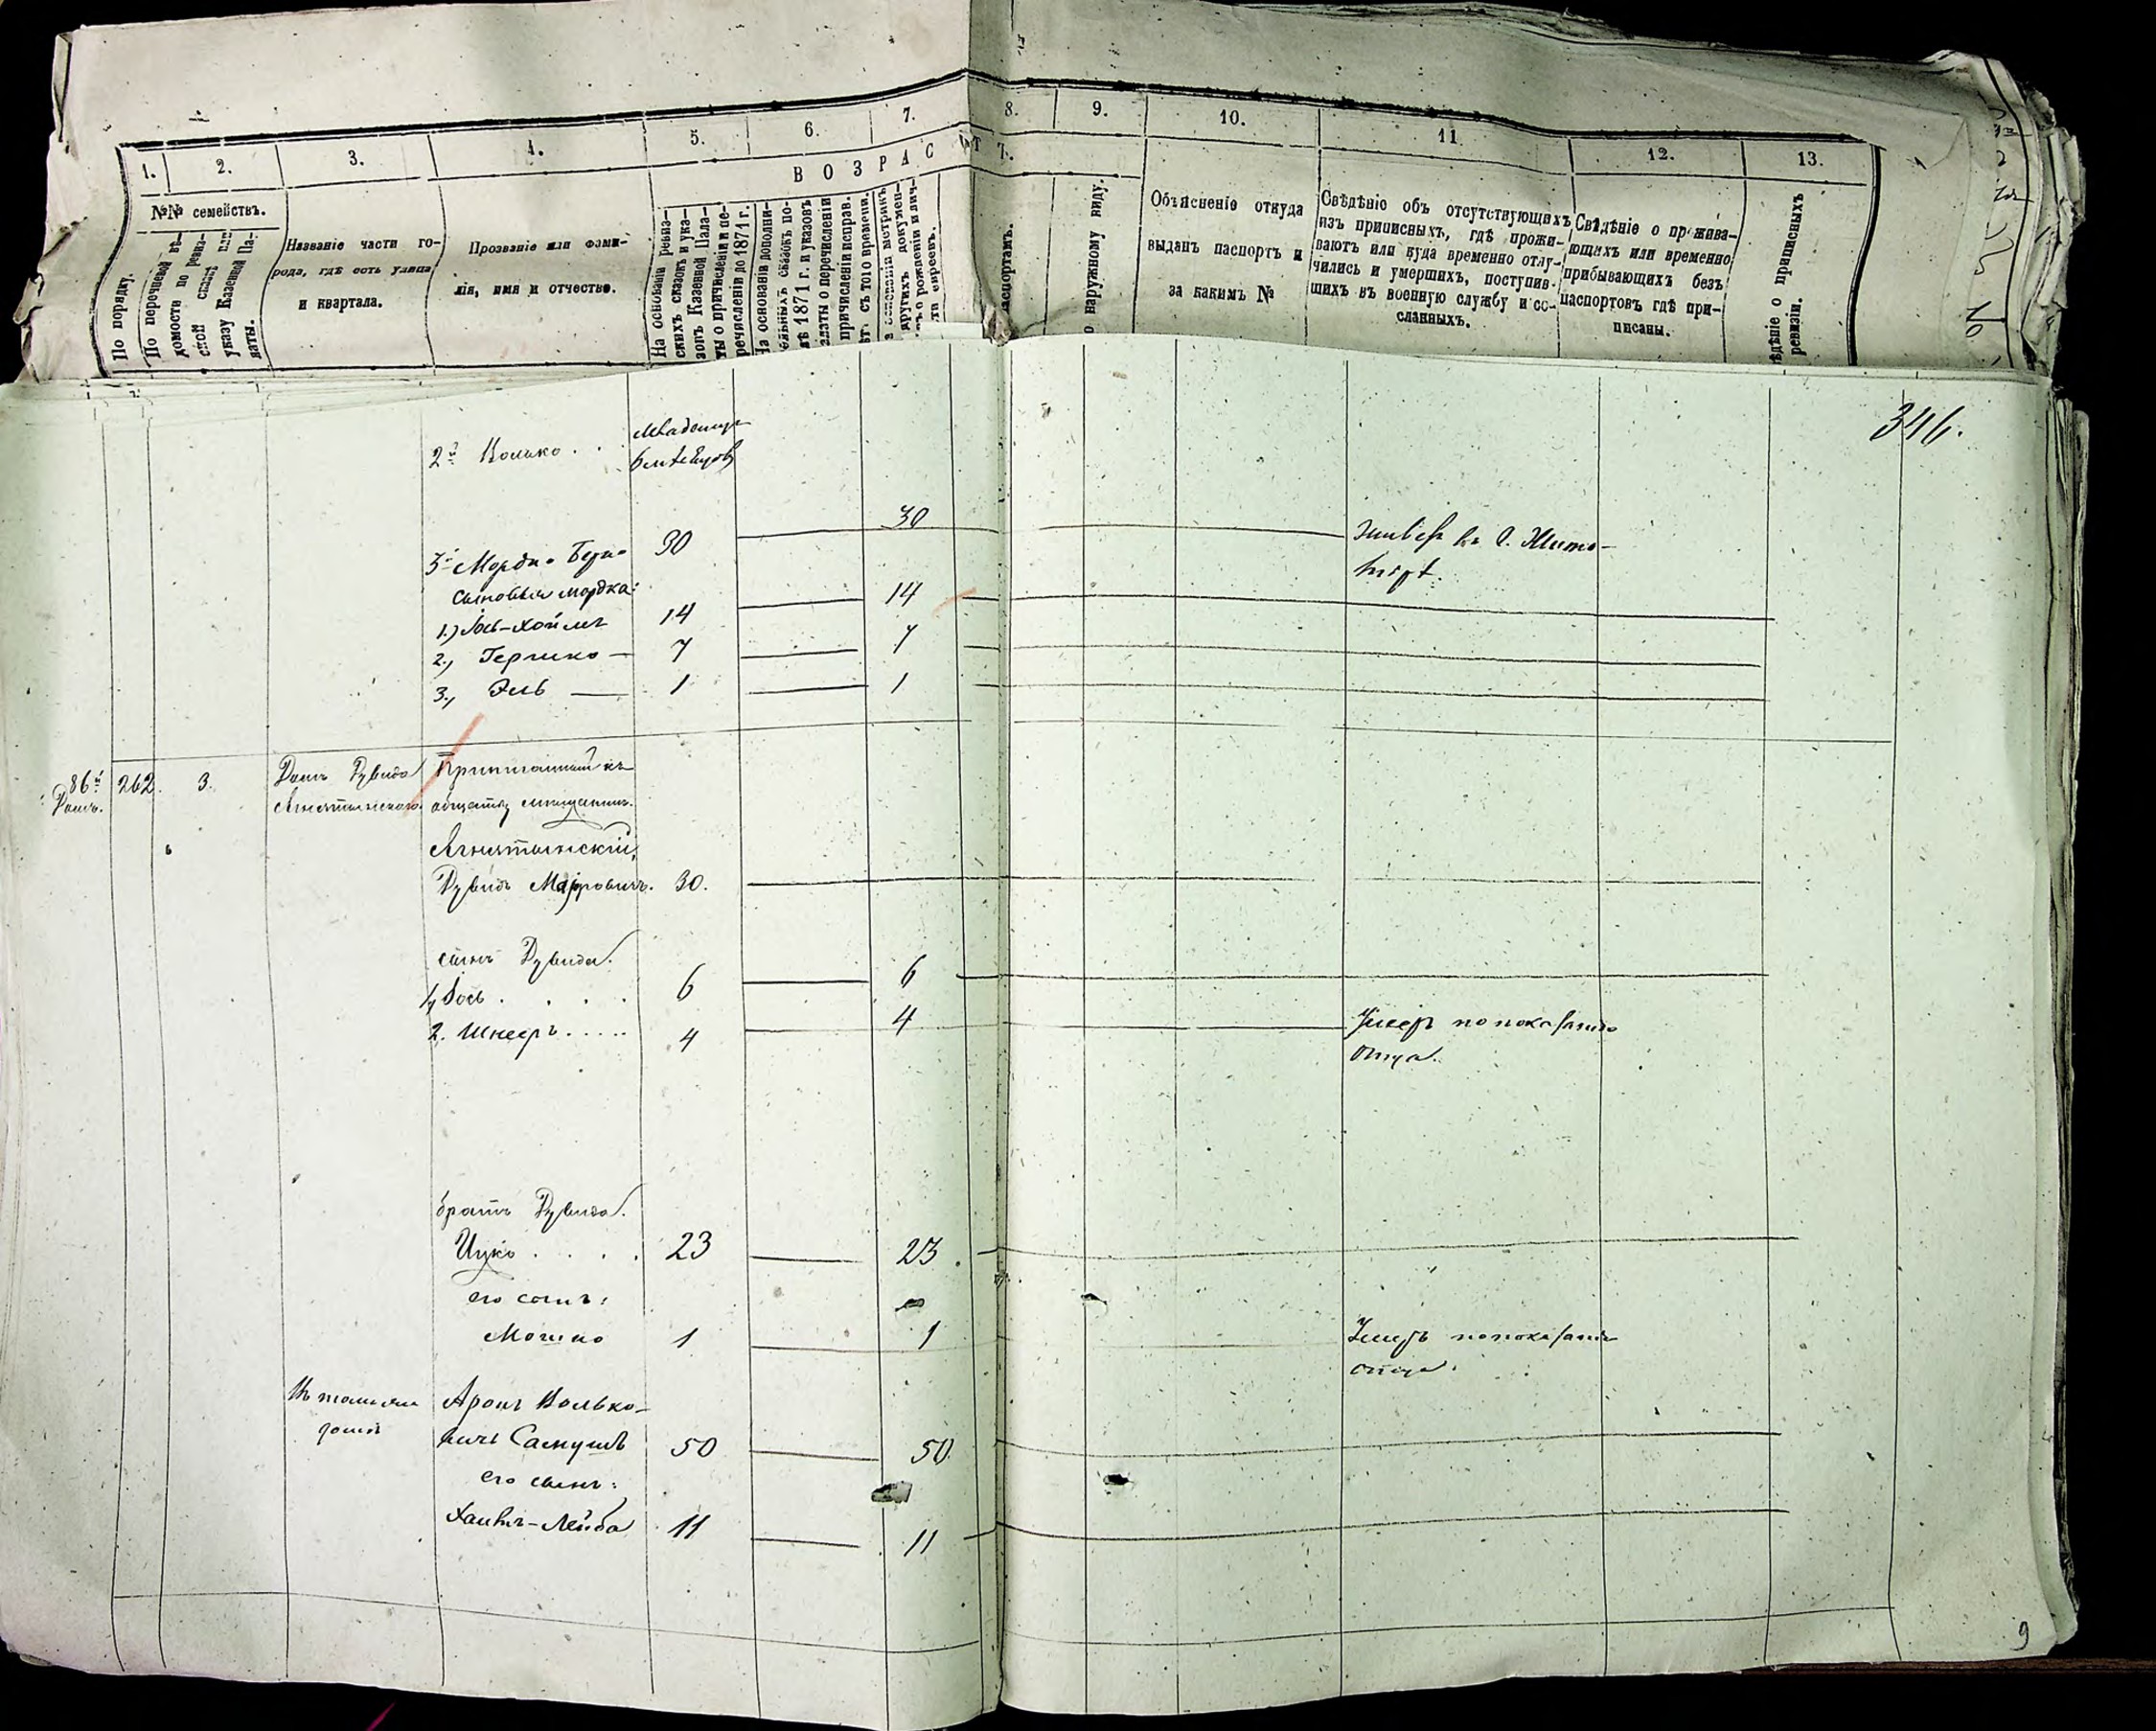 1.
2.
3.
4.
5.
6.
7.
8.
9.
10.
11
12.
13.
ВОЗРАСТЪ.
№№ семействъ.
По порядку.
По перечневой вѣ-
домости по ревиз-
ской сказкѣ или
указу Казенной Па-
латы.
Названіе части го-
рода, гдѣ есть улица
и квартала.
Прозваніе или фами-
лія, имя и отчество.
На основаніи ревиз-
скихъ сказокъ и ука-
зовъ Казенной Пала-
ты о причисленіи и пе-
речисленіи до 1871 г.
На основаніи дополни-
тельныхъ сказокъ по-
слѣ 1871 г. и указовъ
Палаты о перечисленіи
и причисленіи исправ.
съ того времени.
метрикъ
другихъ докумен-
о рожденіи и лич-
евреевъ.
паспортамъ.
По наружному виду.
Объясненіе откуда
выданъ паспортъ и
за какимъ №
Свѣдѣніе объ отсутствующихъ
изъ приписныхъ, гдѣ прожи-
ваютъ или куда временно отлу-
чились и умершихъ, поступив-
шихъ въ военную службу и со-
сланныхъ.
Свѣдѣніе о прожива-
ющихъ или временно
прибывающихъ безъ
паспортовъ гдѣ при-
писаны.
Свѣдѣніе о приписныхъ
ревизіи.
№
346.
2й Волько . .
3й Мордко Берко
30
30
въ г. Жито-
мірѣ.
сыновья Мордка:
1.) Іось-Хаимъ 14 14
2., Гершко — 7 7
3., Эль — 1 1
86й
Домъ.
262. 3.
Домъ Дувида
Приписанный къ
обществу мѣщанинъ
Дувидъ 30.
сынъ Дувида.
1, Іось . . . . 6 6
2. Шнееръ ..... 4 4
Умеръ по показанію
отца.
братъ Дувида.
Ицко . . . . 23 23.
его сынъ:
Мошко 1 1
Умеръ по показанію
отца.
домѣ
Аронъ Волько-
вичъ 50 50.
его сынъ:
Хаимъ-Лейба 11 11
9